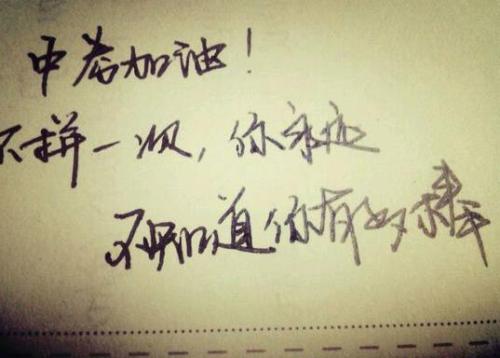 中考加油!
不拼一次,你永远
不知道你有多棒